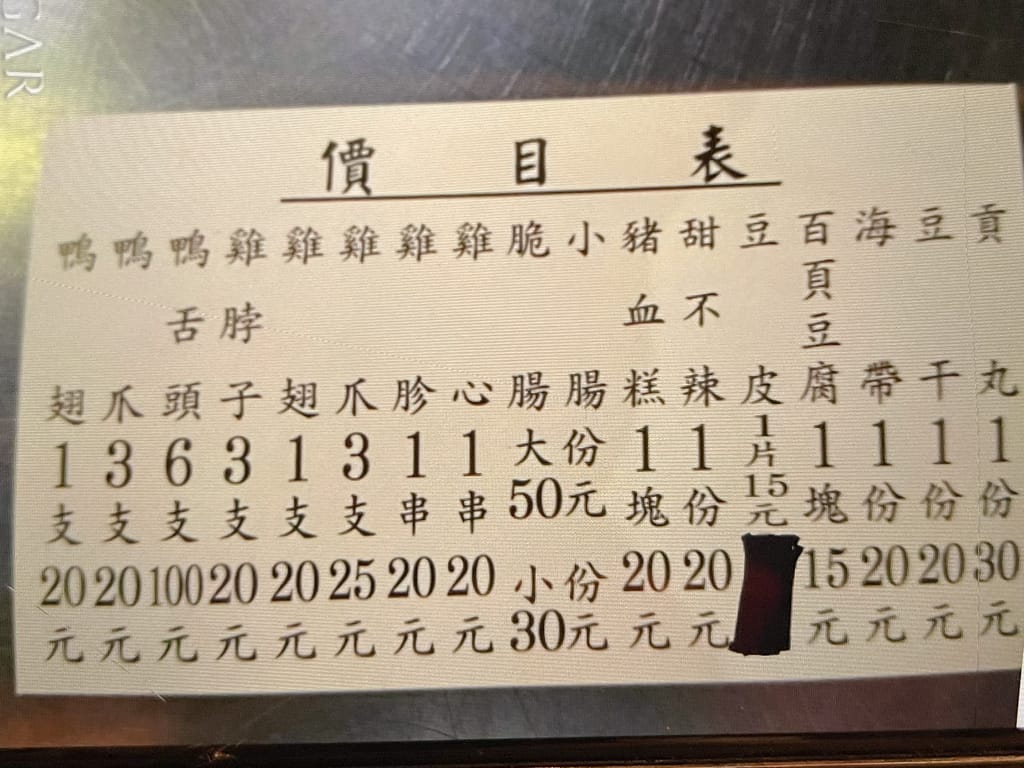 價目表
鴨翅1支20元
鴨爪3支20元
鴨舌頭6支100元
雞脖子3支20元
雞翅1支20元
雞爪3支25元
雞胗1串20元
雞心1串20元
脆腸
小腸
大份
50元
小份
30元
豬血糕1塊20元
甜不辣1份20元
豆皮1片15元
百頁豆腐1塊15元
海帶1份20元
豆干1份20元
貢丸1份30元